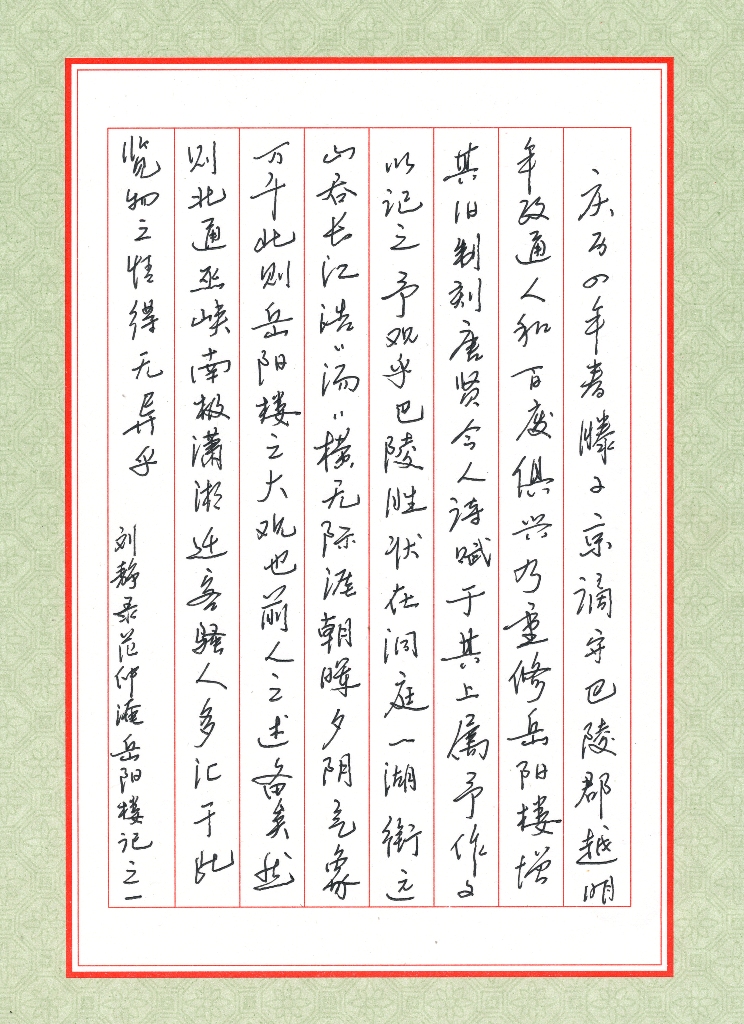 庆历四年春滕子京谪守巴陵郡越明
年政通人和百废俱兴乃重修岳阳楼增
其旧制刻唐贤今人诗赋于其上属予作文
以记之予观乎巴陵胜状在洞庭一湖衔远
山吞长江浩〻汤〻横无际涯朝晖夕阴气象
万千此则岳阳楼之大观也前人之述备矣然
则北通巫峡南极潇湘迁客骚人多汇于此
览物之情得无异乎
刘静录范仲淹岳阳楼记之一